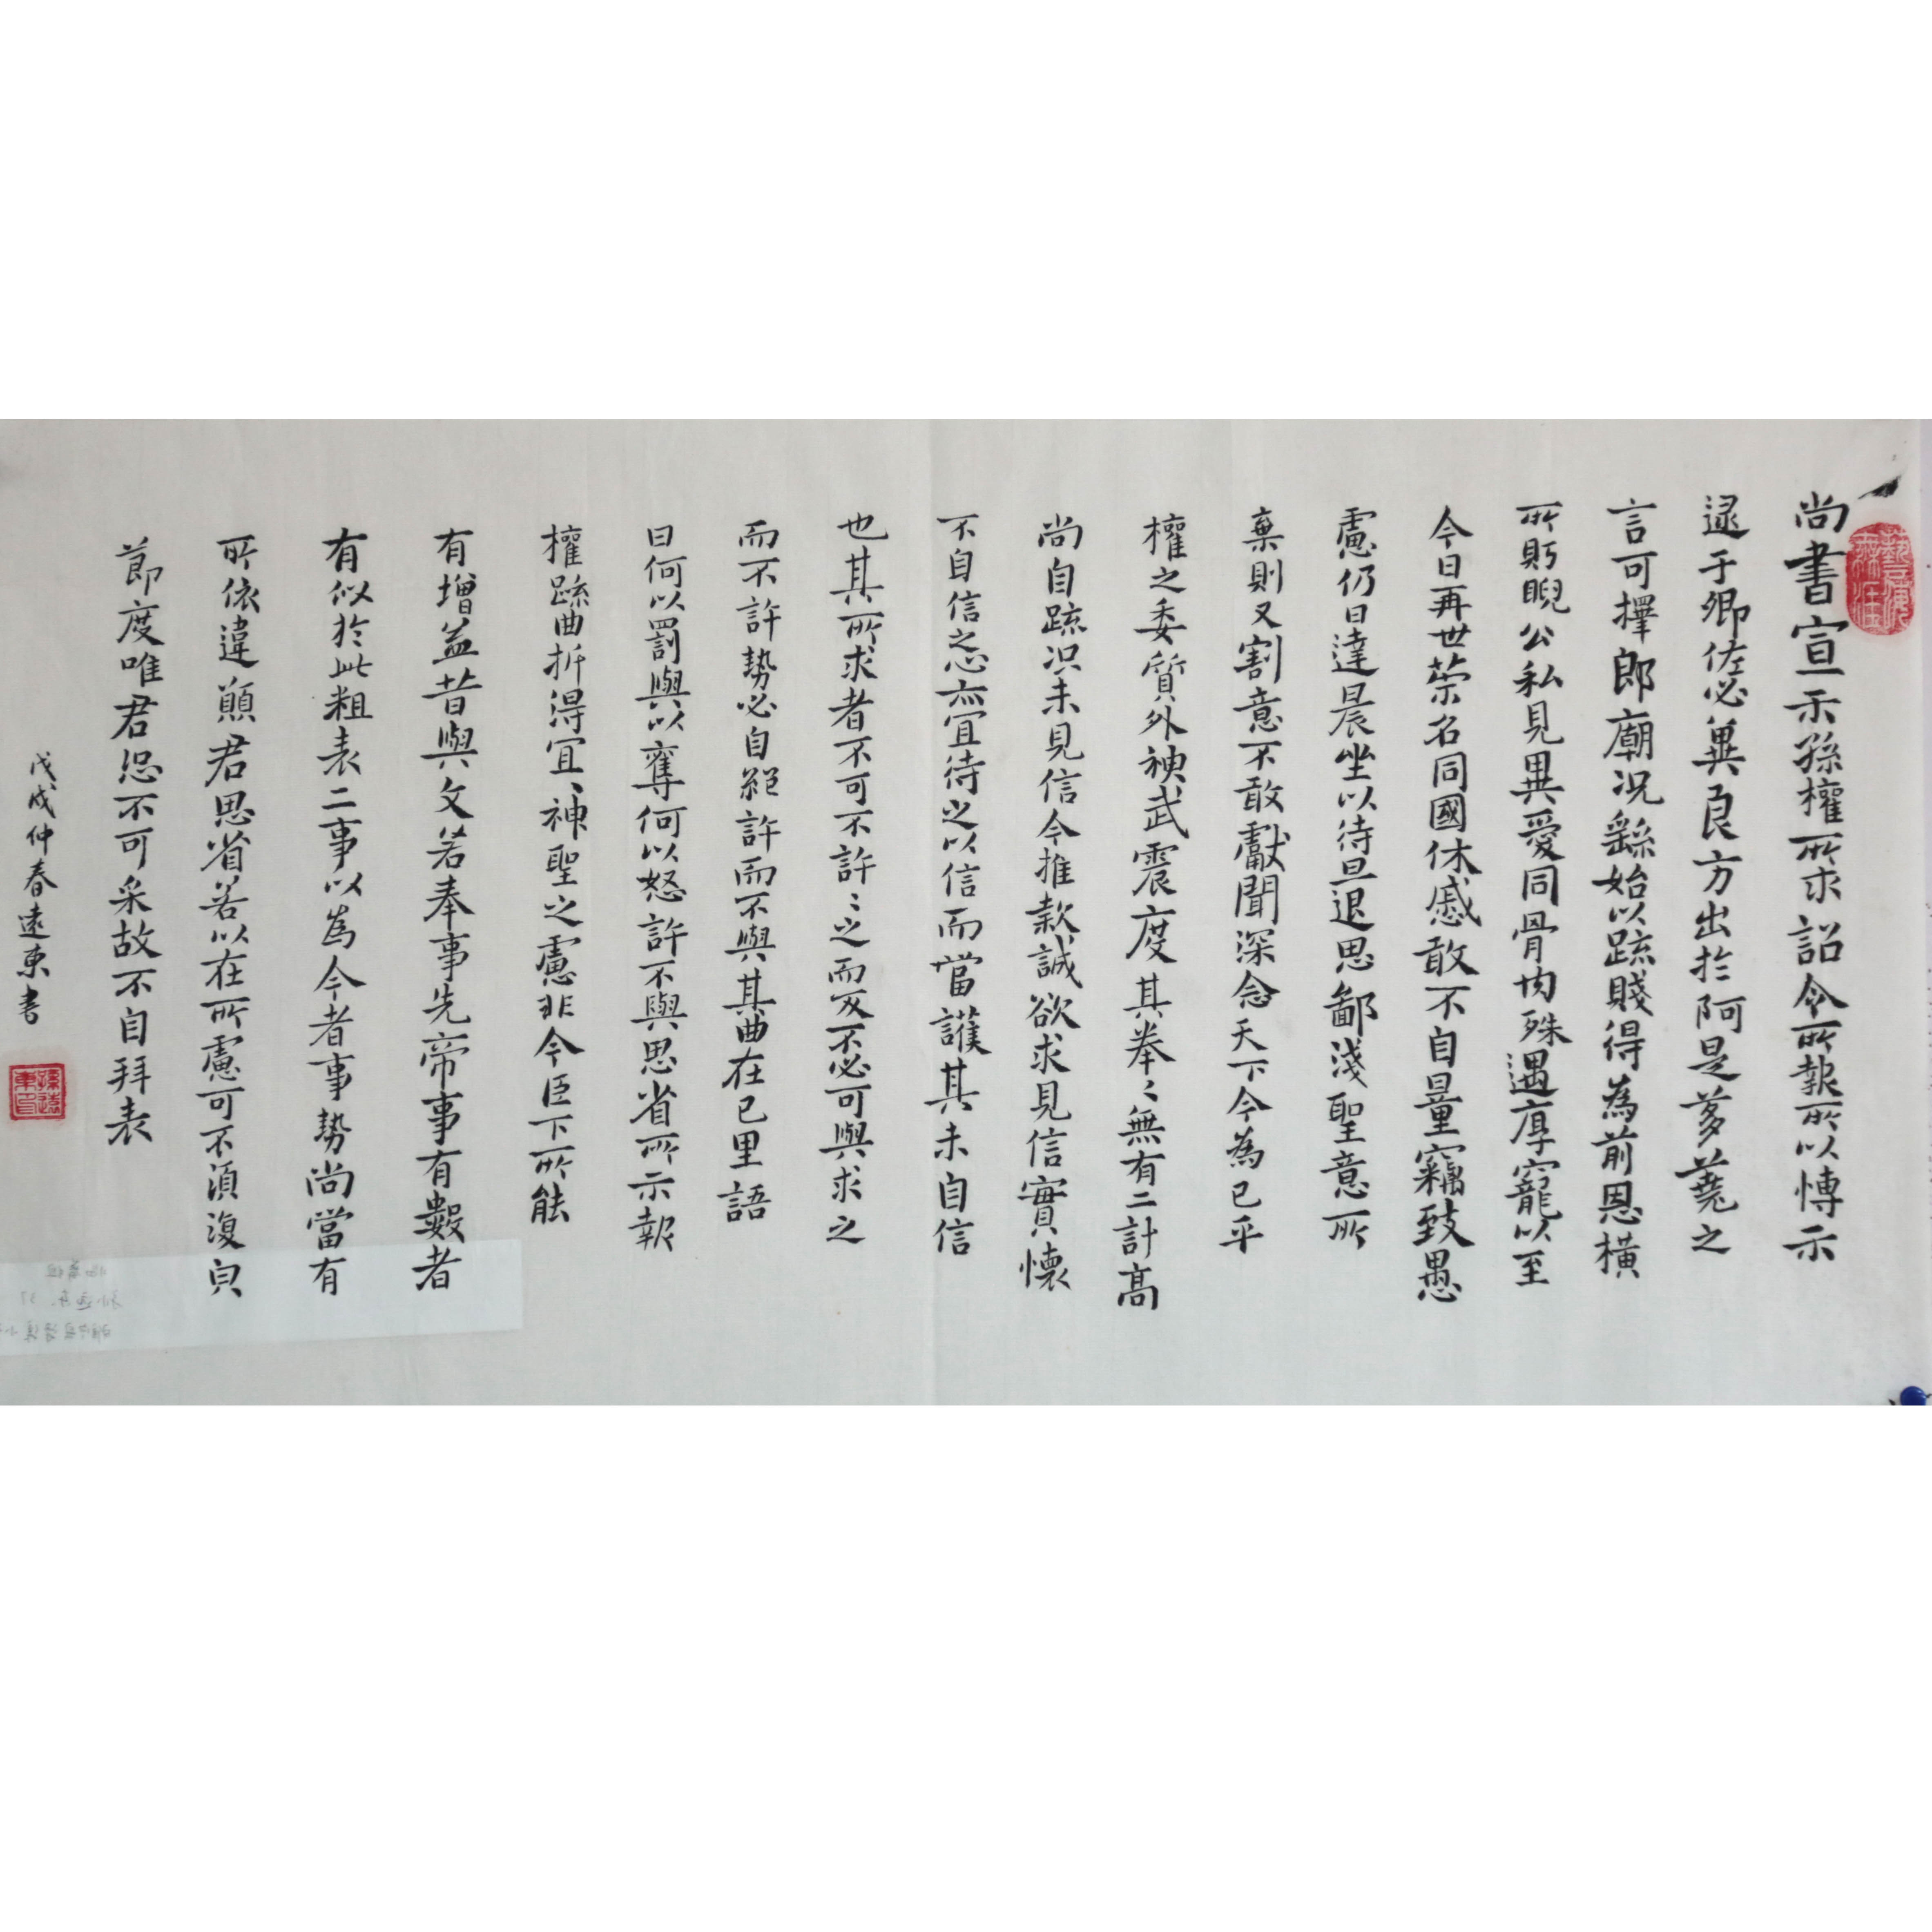 尚書宣示孫權所求詔令所報所以博示
逮于卿佐必冀良方出於阿是芻蕘之
言可擇郎廟況繇始以疏賤得為前恩橫
所眄睨公私見異愛同骨肉殊遇厚寵以至
今日再世荣名同國休慼敢不自量竊致愚
慮仍日達晨坐以待旦退思鄙淺聖意所
棄則又割意不敢獻聞深念天下今為已平
權之委質外祔武震度其拳〻無有二計高
尚自疏況未見信今推款誠欲求見信實懷
不自信之心亦宜待之以信而當護其未自信
也其所求者不可不許〻之而反不必可與求之
而不許勢必自絕許而不與其曲在己里語
曰何以罰與以奪何以怒許不與思省所示報
權疏曲折得宜宜神聖之慮非今臣下所能
有增益昔與文若奉事先帝事有數者
有似於此粗表二事以為今者事勢尚當有
所依違願君思省若以在所慮可不須復皃
節度唯君恐不可采故不自拜表
戊戌仲春遠東書
孫遠東印